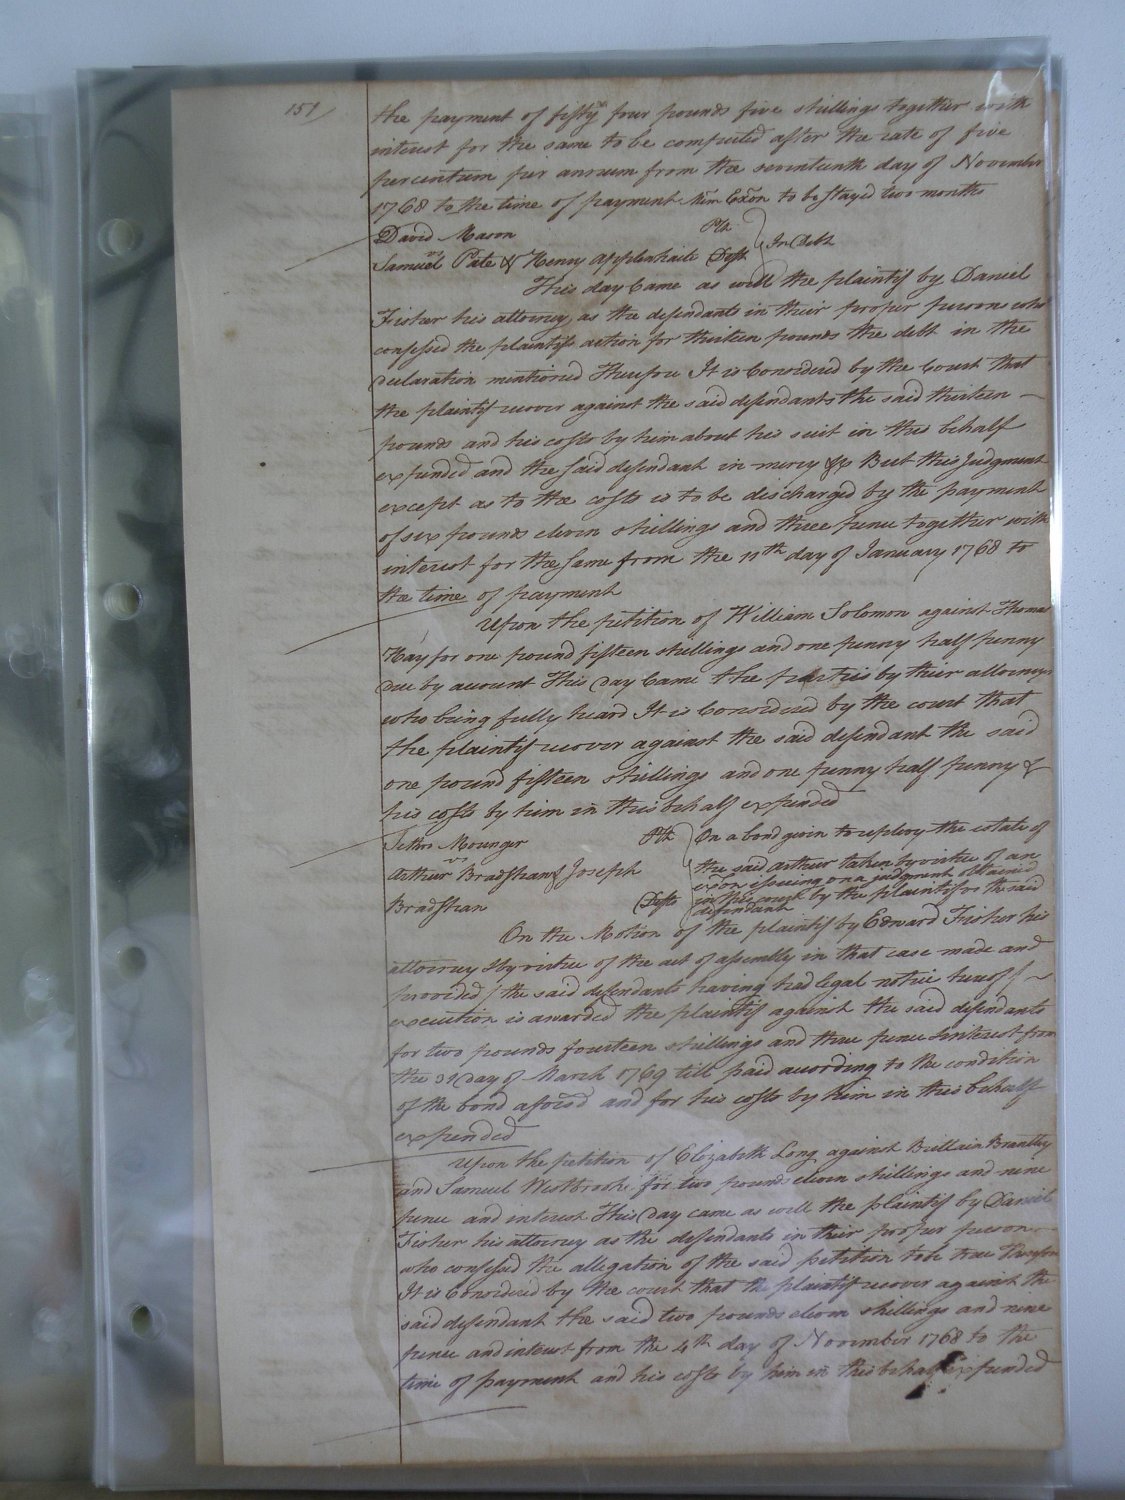 151/
the payment of fifty four pounds five shillings together with
interest for the same to be computed after the rate of five
percentum per annum from the seventeenth day of November
1768 to the time of payment Mem Exon to be stayd two months
David Mason Plt
vs In Debt
Samuel Pate & Henry Applewhaite Defts
This day Came as well the plaintif by Daniel
Fisher his attorney as the defendants in their proper persons who
confessed the plaintifs action for thirteen pounds the debt in the
declaration mentioned Therefore It is Considered by the Court that
the plaintif recover against the said defendants the said thirteen
pounds and his costs by him about his suit in this behalf
expended and the said defendant in mercy &c But this Judgment
except as to the costs is to be discharged by the payment
of six pounds eleven shillings and three pence together with
interest for the same from the 11th day of January 1768 to
the time of payment
Upon the petition of William Solomon against Thomas
Hay for one pound fifteen shillings and one penny half penny
due by account This day Came the parties by their attorneys
who being fully heard It is Considered by the court that
the plaintif recover against the said defendant the said
one pound fifteen shillings and one penny half penny &
his costs by him in this behalf expended
Jethro Mounger Plt On a bond given to replevy the estate of
vs the said Arthur taken by virtue of an
Arthur Bradshan & Joseph exon issuing on a judgment obtained
in this court by the plaintif vs the said
Bradshan Defts defendant
On the Motion of the plaintif by Edward Fisher his
attorney & by virtue of the act of assembly in that case made and
provided / the said defendants having had legal notice hereof /
execution is awarded the plaintif against the said defendants
for two pounds fourteen shillings and three pence & interest from
the 31 day of March 1769 till paid according to the condition
of the bond aforesd and for his costs by him in this behalf
expended
Upon the petition of Elizabeth Long against Brantley
and Samuel Westbrook for two pounds eleven shillings and nine
pence and interest This day came as well the plaintif by Daniel
Fisher his attorney as the defendants in their proper person
who confessed the allegation of the said petition to be true Therefore
It is Considered by the court that the plaintif recover against the
said defendant the said two pounds eleven shillings and nine
pence and interest from the 4th day of November 1768 to the
time of payment and his costs by him in this behalf expended